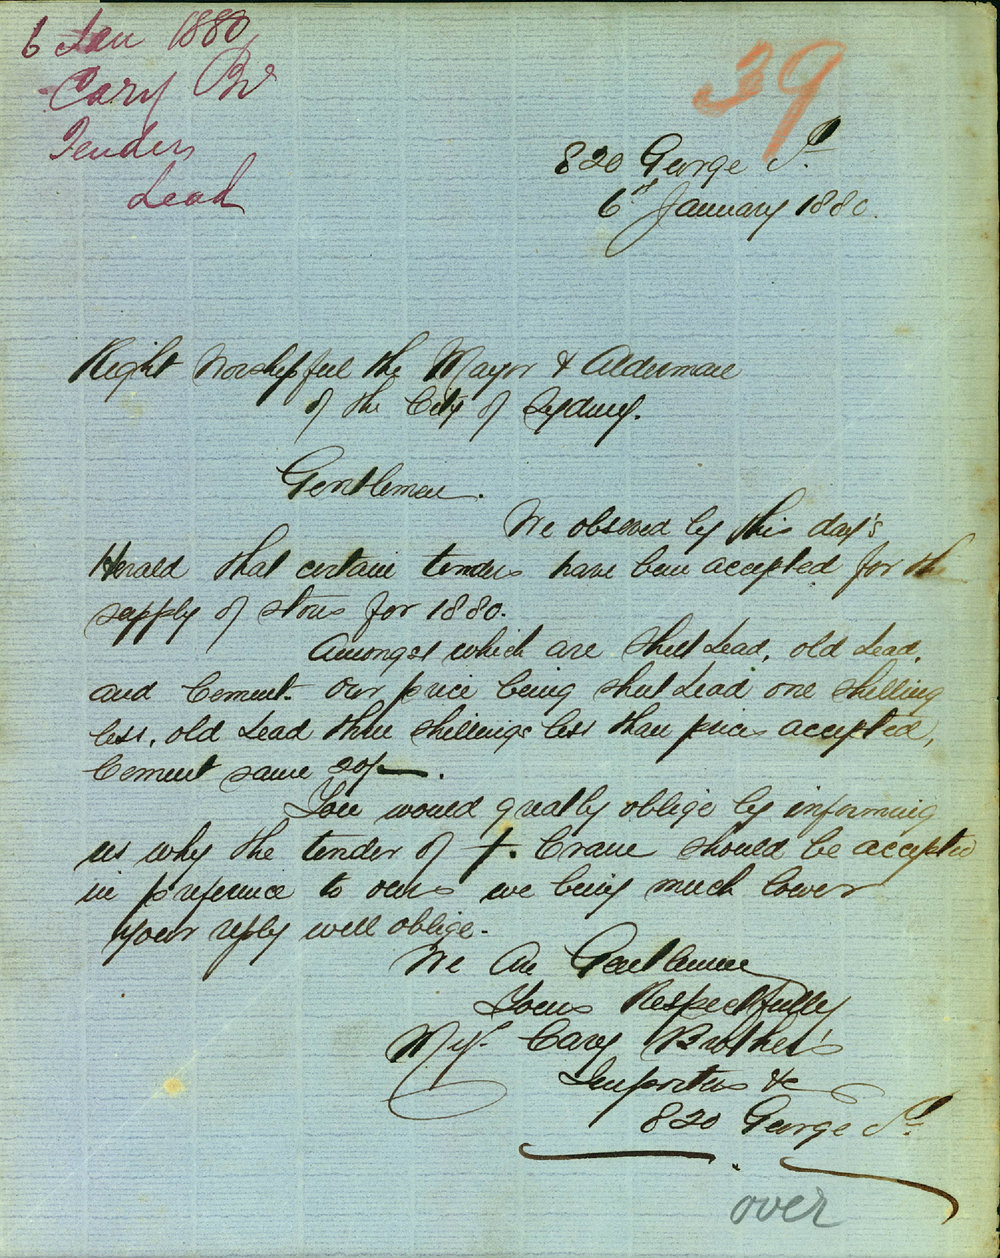 6 Jan 1880
Cary Br
Tenders
Lead
39
820 George St
6th January 1880.
Right Worshipful the Mayor & Aldermen
of the City of Sydney.
Gentlemen.
We observed by this day's
Herald that certain tenders have been accepted for the
supply of stores for 1880.
Amongst which are Sheet Lead, old Lead,
and Cement. Our price being sheet Lead one shilling
less, old Lead three shillings less than prices accepted,
Cement same 20/-.
You would greatly oblige by informing
us why the tender of J. Crane should be accepted
in preference to ours we being much lower
your reply will oblige.
We Are Gentlemen
Yours Respectfully
Cary Brother's
Importers &c
820 George St.
over